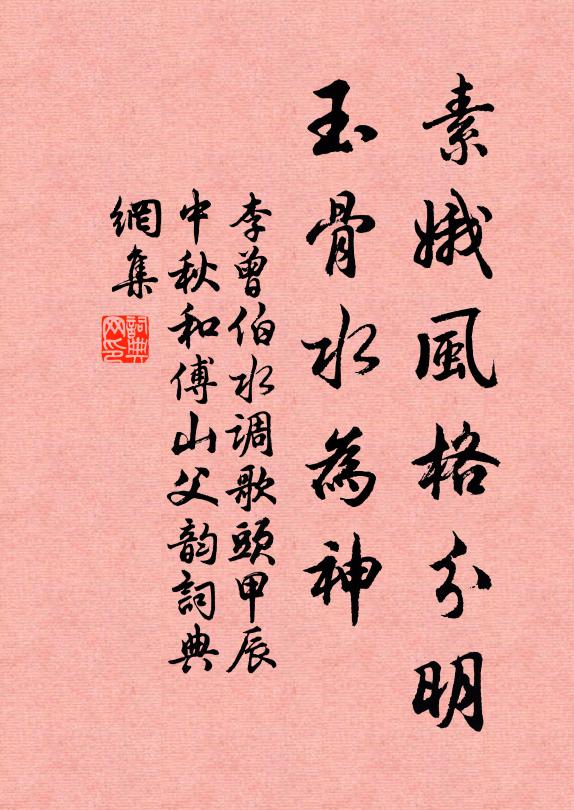 素娥風格分明
玉骨水為神
李曾伯水调歌頭甲辰
中秋和傅山父韵詞典
網集
詞典網印